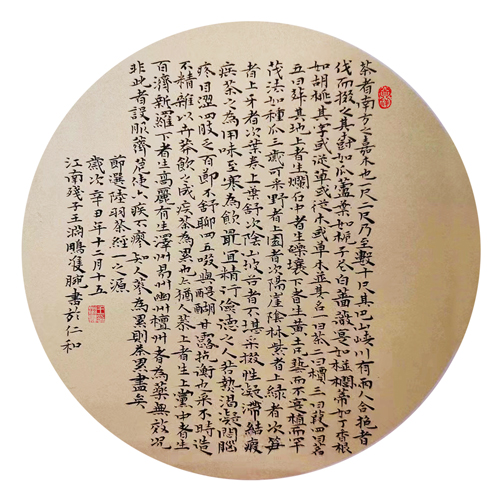 茶者南方之嘉木也一尺二尺乃至數十尺其巴山峽川有兩人合抱者
伐而掇之其樹如瓜蘆葉如梔子花白薔薇實如栟櫚蒂如丁香根
如胡桃其字或從草或從木或草木並其名一曰茶二曰檟三曰蔎四曰茗
五曰荈其地上者生爛石中者生礫壤下者生黃土凡藝而不實植而罕
茂法如種瓜三歲可采野者上園者次陽崖陰林紫者上綠者次笋
者上牙者次葉卷上葉舒次陰山坡谷者不堪采掇性凝滯結瘕
疾茶之為用味至寒為飲最宜精行儉德之人若熱渴凝悶腦
疼目澀四肢乏百節不舒聊四五啜與醍醐甘露抗衡也采不時造
不精雜以卉莽飲之成疾茶為累也亦猶人參上者生上黨中者生
百濟新羅下者生高麗有生澤州易州幽州檀州者為藥無效況
非此者設服薺苨使六疾不瘳知人參為累則茶累盡矣
節選陸羽茶經一之源
歲次辛丑年十二月十五
江南殘子王潤鵬雙腕書於仁和